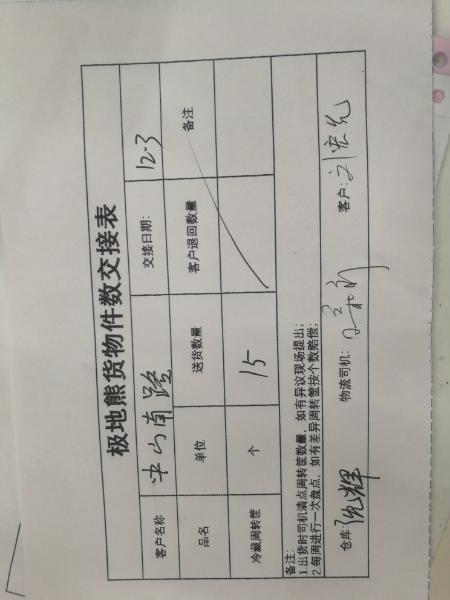 极地熊货物件数交接表
客户名称 中山南路 交接日期: 12-3
品名 单位 送货数量 客户退回数量 备注
冷藏周转筐 个 15
备注:
1.出货时司机清点周转筐数量,如有异议现场提出;
2.每周进行一次盘点,如有差异周转筐按个数赔偿;
仓库: 物流司机: 客户: